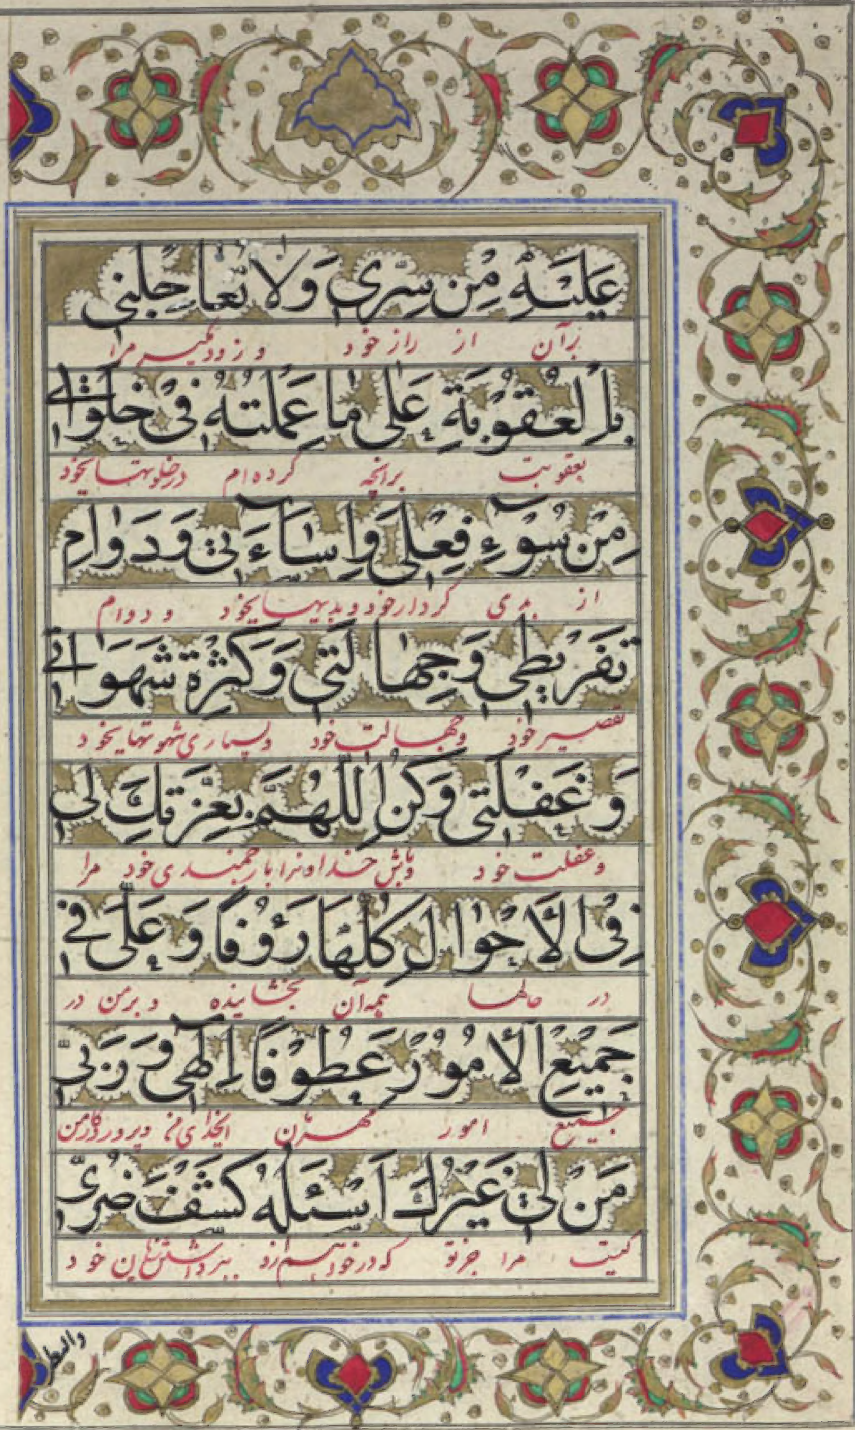 عَلَيْهِ مِنْ سِرّى وَلا تُعاجِلْنى
بر آن از راز خود و زود مگیر مرا
بِالْعُقُوبَةِ عَلى ما عَمِلْتُهُ فى خَلَواتى
بعقوبت برانچه کرده‌ام در خلوتهای خود
مِنْ سُوۤءِ فِعْلى وَاِساۤءَتى وَدَوامِ
از بدی کردار خود و بدیهای خود و دوام
تَفْريطى وَجَهالَتى وَكَثْرَةِ شَهَواتى
تقصیر خود و جهالت خود و بسیاری شهوتهای خود
وَغَفْلَتى وَكُنِ اللّٰهُمَّ بِعِزَّتِكَ لى
و غفلت خود و باش خداوندا بارجمندی خود مرا
فِى الْاَحْوالِ كُلِّها رَؤُوفًا وَعَلَىَّ فى
در حالها همه آن بخشاینده و بر من در
جَميعِ الْاُمُورِ عَطُوفًا اِلٰهى وَرَبّى
جمیع امور مهربان ایخدای من و پروردگار من
مَنْ لى غَيْرُكَ اَسْئَلُهُ كَشْفَ ضُرّى
کیست مرا جز تو که درخواهم ازو برداشتن زیان خود
والنظر